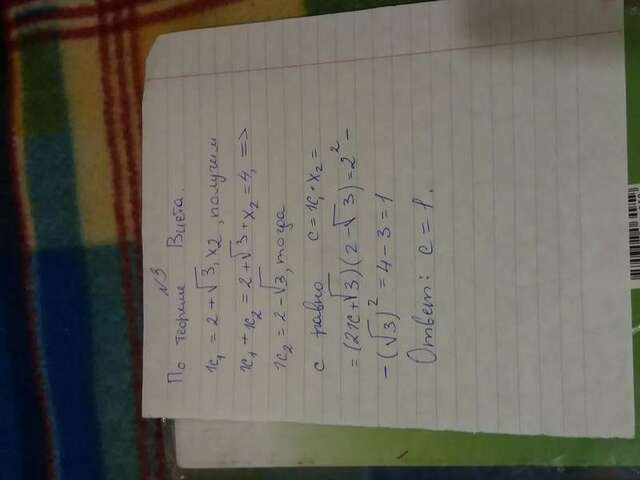 №3
По теореме Виета.
x₁ = 2 + √3, x₂, получим
x₁ + x₂ = 2 + √3 + x₂ = 4, =>
x₂ = 2 - √3, тогда
c равно c = x₁ · x₂ =
= (2x + √3)(2 - √3) = 2² -
- (√3)² = 4 - 3 = 1
Ответ: c = 1.